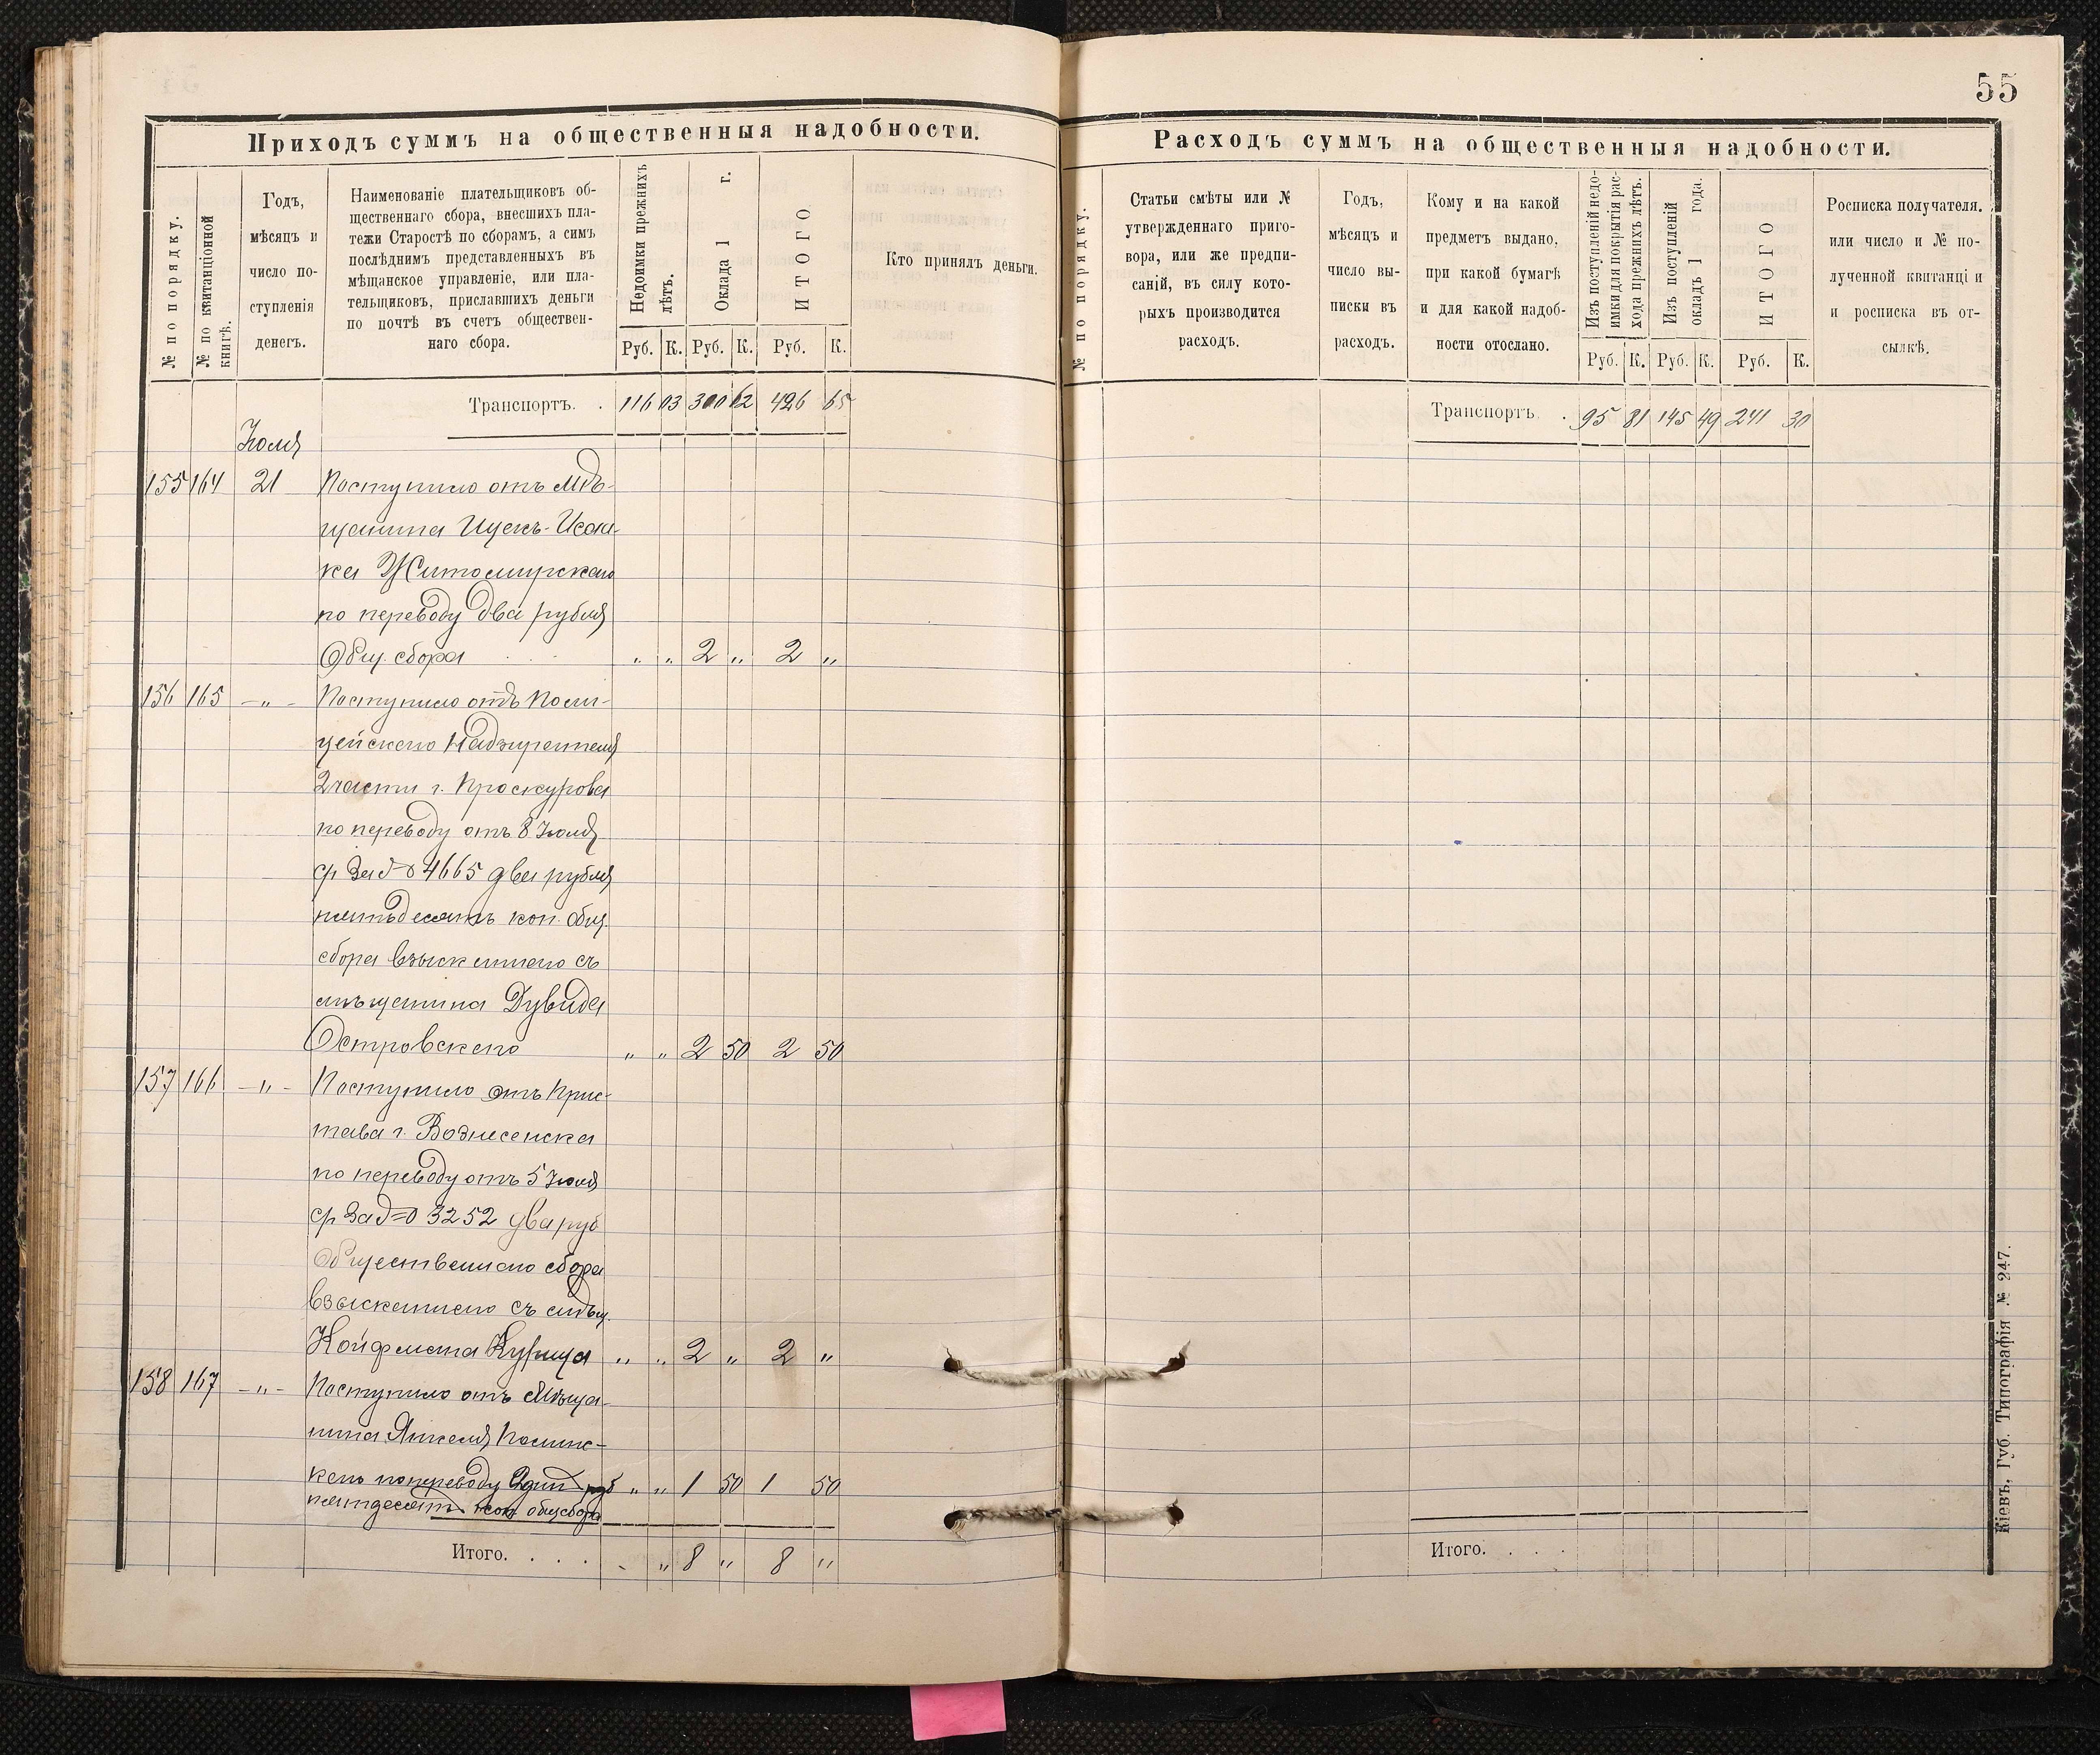 55
Приходъ суммъ на общественныя надобности.
№ по порядку.
№ по квитанціонной книгѣ.
Годъ,
мѣсяцъ и
число по-
ступленія
денегъ.
Наименованіе плательщиковъ об-
щественнаго сбора, внесшихъ пла-
тежи Старостѣ по сборамъ, а симъ
послѣднимъ представленныхъ въ
мѣщанское управленіе, или пла-
тельщиковъ, приславшихъ деньги
по почтѣ въ счетъ обществен-
наго сбора.
Недоимки прежнихъ
лѣтъ.
Оклада 1 г.
ИТОГО
Руб. К. Руб. К. Руб. К.
Кто принялъ деньги.
Транспортъ. . 116 03 300 62 426 65
Іюля
155 164 21 Поступило отъ Мѣ-
щанина Ицекъ-Исаа-
ка Житомирскаго
по переводу два рубля
Общ. сбора . . „ „ 2 „ 2 „
156 165 —„— Поступило отъ Поли-
цейскаго Надзирателя
2 части г. Проскурова
по переводу отъ 8 Іюля
за № 4665 два рубля
пятьдесятъ коп. общ.
сбора взысканнаго съ
мѣщанина Дувида
Островскаго „ „ 2 50 2 50
157 166 —„— Поступило отъ Прис-
тава г. Вознесенска
по переводу отъ 5 Іюля
за № 3252 два руб
Общественнаго сбора
взысканнаго съ мѣщ.
Койфмана Курица „ „ 2 „ 2 „
158 167 —„— Поступило отъ Мѣща-
нина Янкеля Полинс-
каго по переводу Один руб „ „ 1 50 1 50
пятдесят коп общ сбора
Итого. . . . - „ 8 „ 8 „
Расходъ суммъ на общественныя надобности.
№ по порядку.
Статьи смѣты или №
утвержденнаго приго-
вора, или же предпи-
саній, въ силу кото-
рыхъ производится
расходъ.
Годъ,
мѣсяцъ и
число вы-
писки въ
расходъ.
Кому и на какой
предметъ выдано,
при какой бумагѣ
и для какой надоб-
ности отослано.
Изъ поступленій недо-
имки для покрытія рас-
хода прежнихъ лѣтъ.
Изъ поступленій
окладъ 1 года.
ИТОГО
Руб. К. Руб. К. Руб. К.
Росписка получателя.
или число и № по-
лученной квитанці и
и росписка въ от-
сылкѣ.
Транспортъ . 95 81 145 49 241 30
Итого. . . .
Кіевъ, Губ. Типографія № 247.